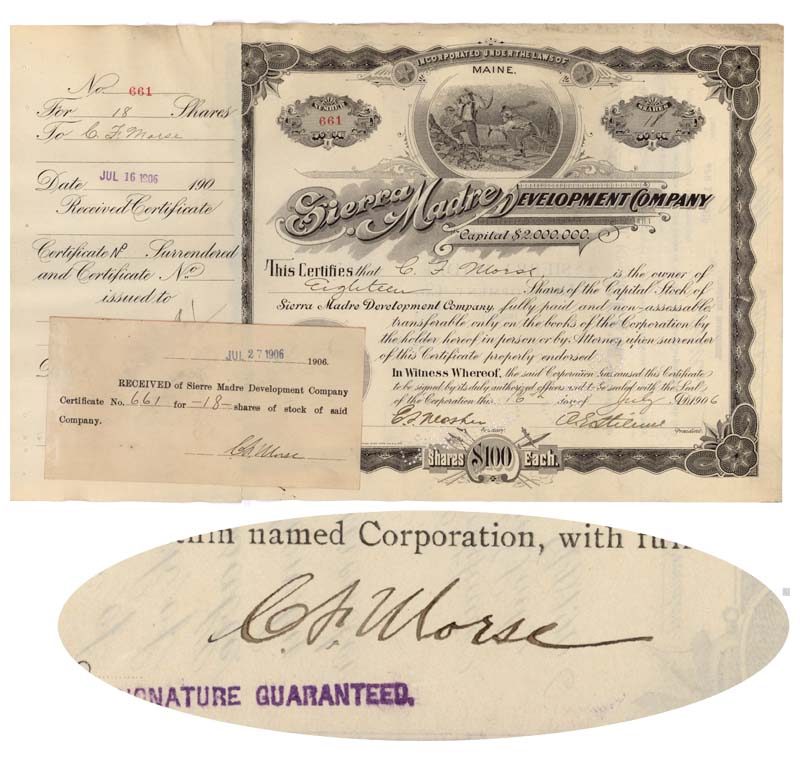 No. 661
For 18 Shares
To C. F. Morse
Date JUL 16 1906 190
Received Certificate
Certificate No Surrendered
and Certificate No.
issued to
JUL 27 1906 1906.
RECEIVED of Sierre Madre Development Company
Certificate No. 661 for -18- shares of stock of said
Company.
C.F. Morse
INCORPORATED UNDER THE LAWS OF
MAINE.
NUMBER
661
SHARES
18
Sierra Madre DEVELOPMENT COMPANY
Capital $2,000,000.
This Certifies that C. F. Morse, is the owner of
Eighteen Shares of the Capital Stock of
Sierra Madre Development Company, fully paid and non-assessable,
transferable only on the books of the Corporation by
the holder hereof in person or by Attorney upon surrender
of this Certificate properly endorsed.
In Witness Whereof, the said Corporation has caused this Certificate
to be signed by its duly authorized officers and to be sealed with the Seal
of the Corporation this 16th day of July A.D. 1906
President
Shares $100 Each.
named Corporation, with
C.F. Morse
SIGNATURE GUARANTEED.